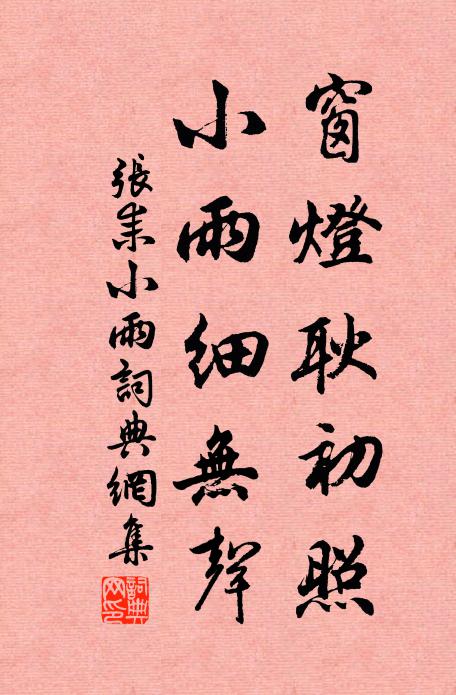 窗燈耿初照
小雨細無聲
張耒小雨詞典網集
詞典網印